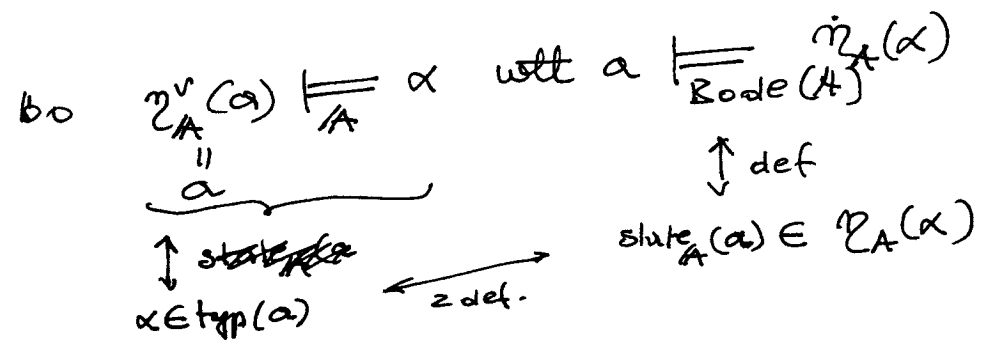 bo η^∨_𝔸(a) ⊨_𝔸 α wtt a ⊨_Bode(𝔸) η̇_𝔸(α)
||
a
↕ def
↕ state_𝔸(a) ∈ η_A(α)
α ∈ typ(a) ↔ z def.